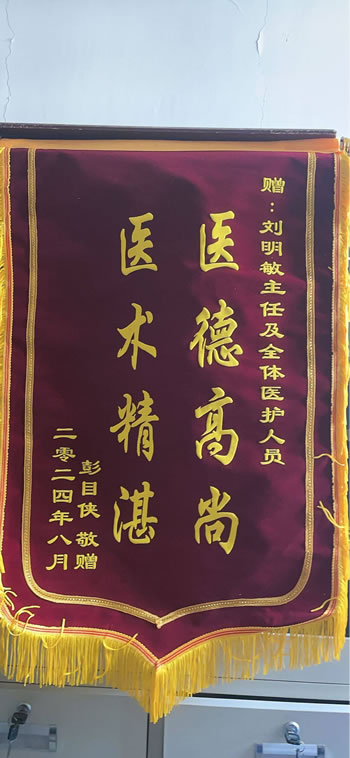 赠：刘明敏主任及全体医护人员
医德高尚
医术精湛
彭目侠 敬赠
二零二四年八月